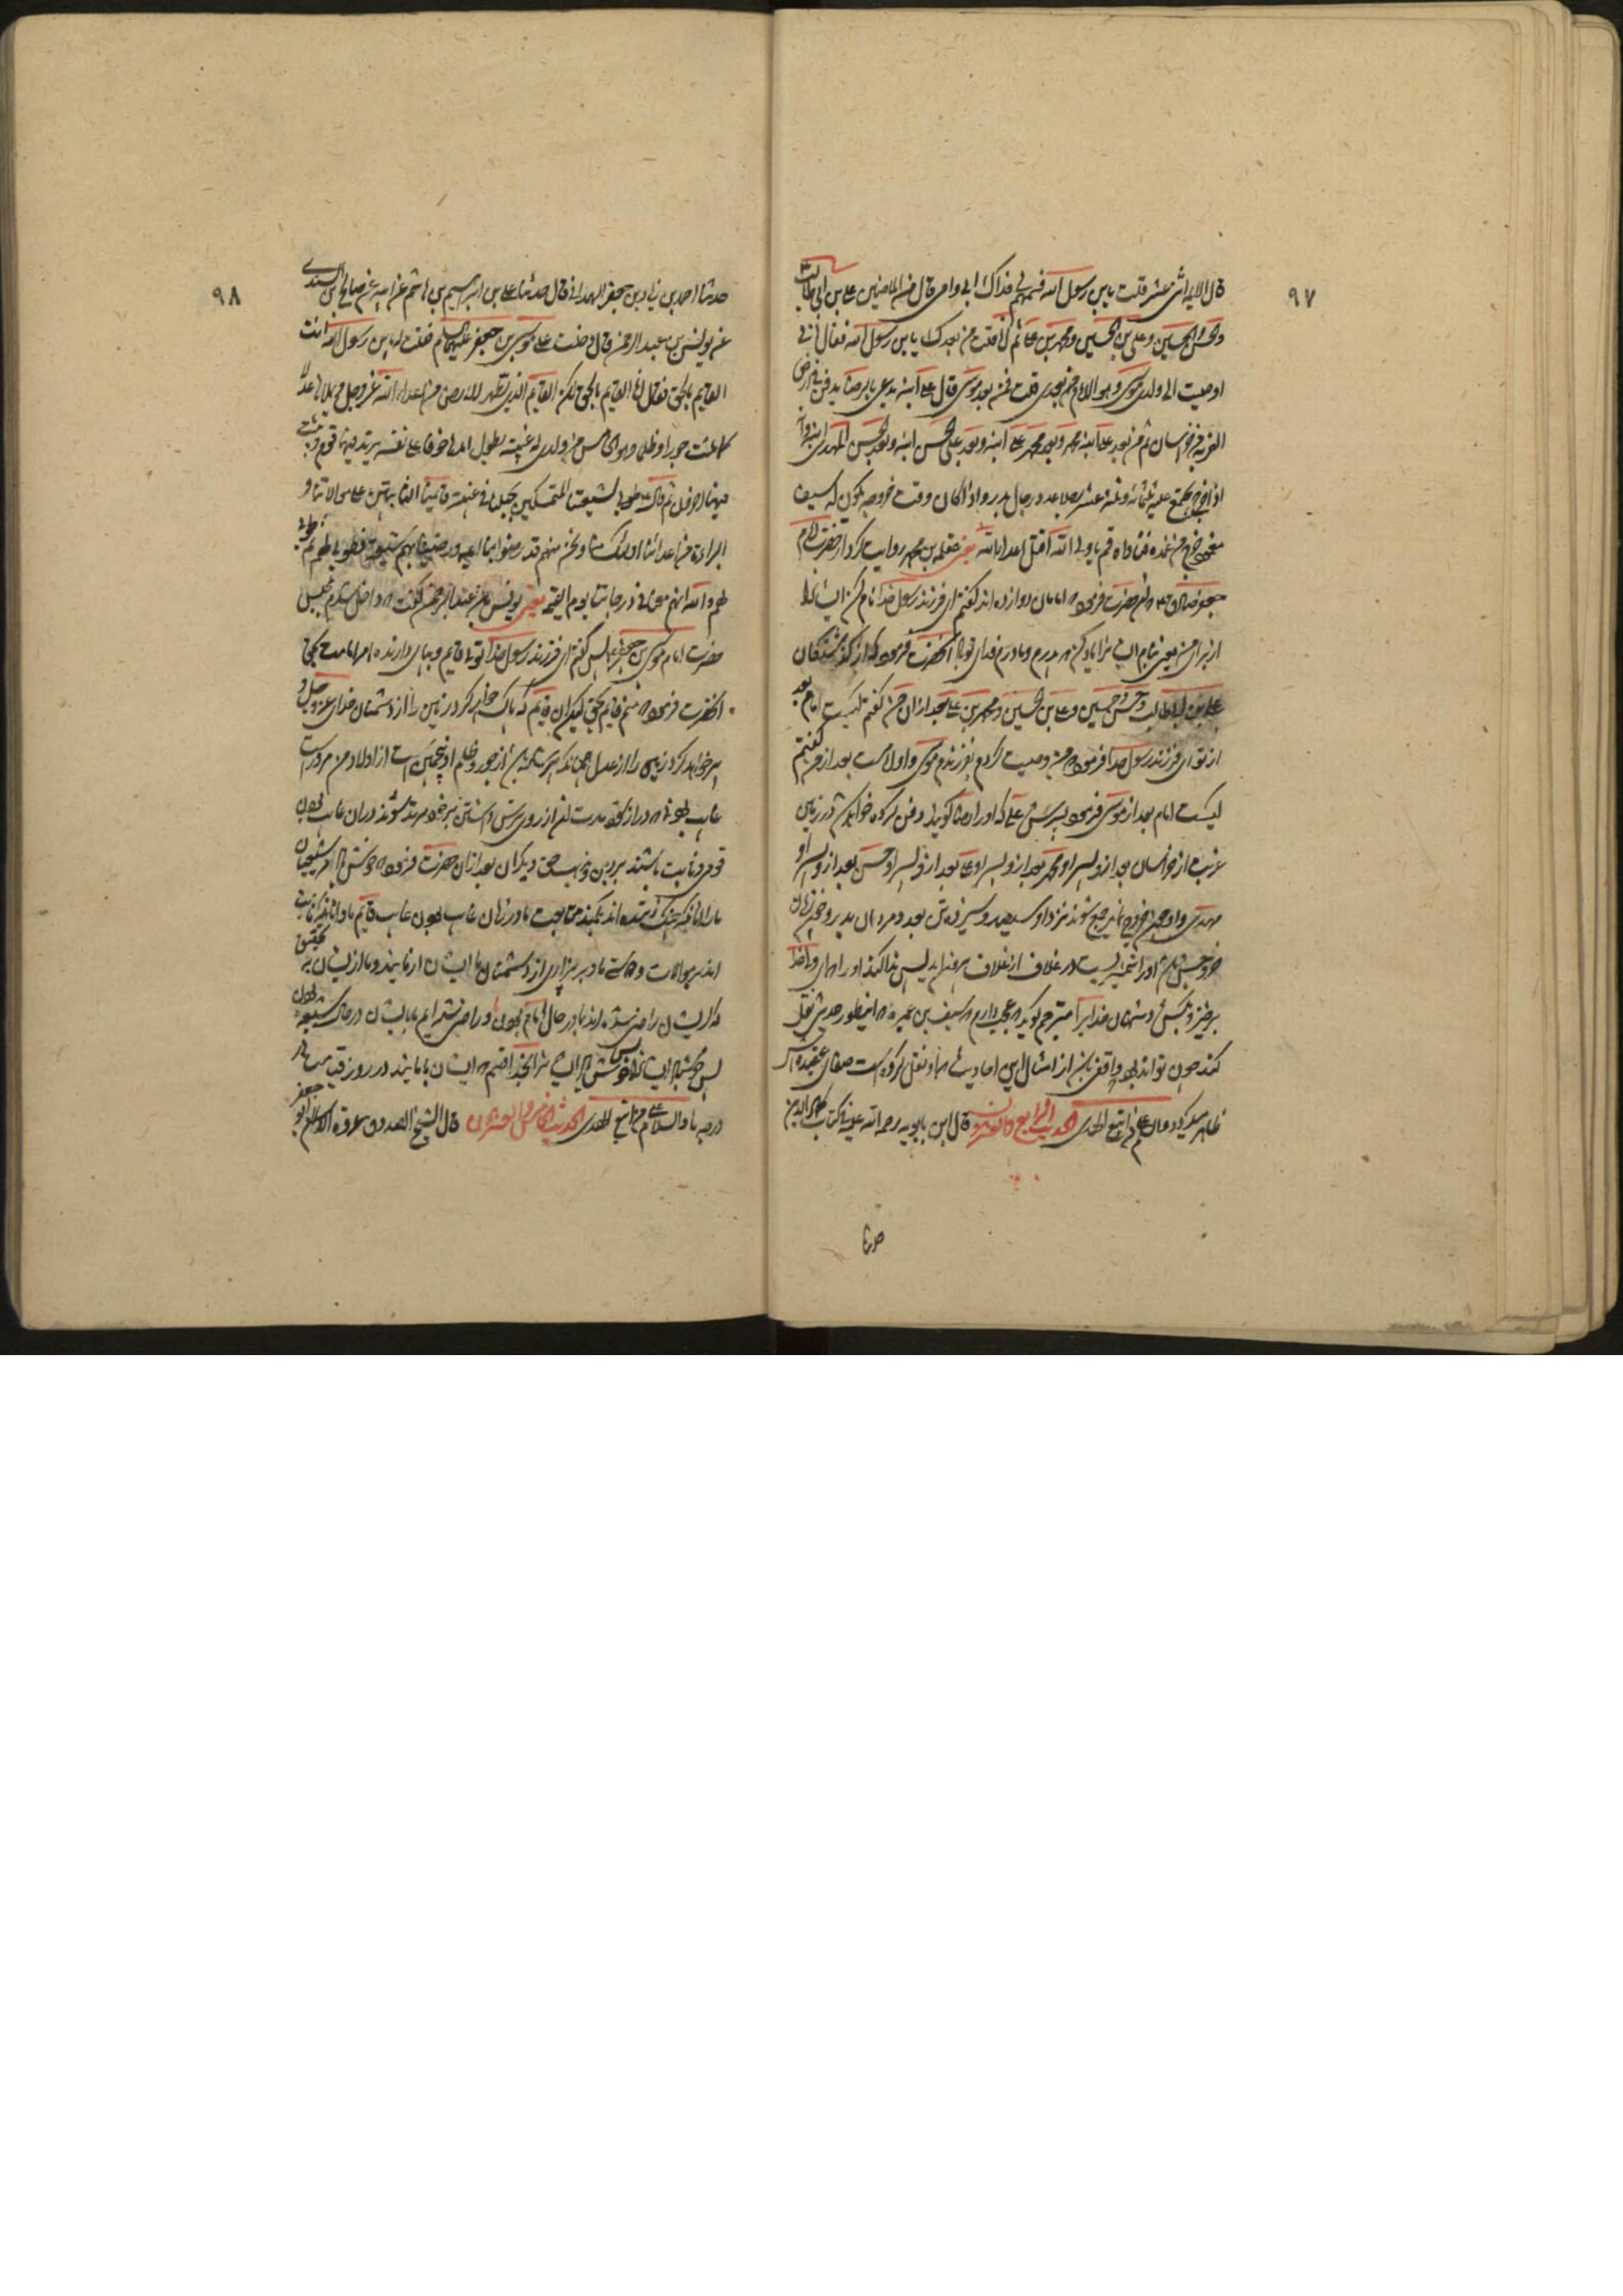 ٩٧
قال الائمة اثنی عشر قلت یابن رسول الله فسمهم لی فداک ابی و امی قال من الماضین علی بن ابی طالب
والحسن والحسین و علی بن الحسین و محمد بن علی ثم انا قلت من بعدک یابن رسول الله فقال انی
اوصیت الی ولدی موسی و هو الامام بعدی قلت فمن بعد موسی قال علی ابنه یدعی بالرضا یدفن بارض
الغربة من خراسان ثم من بعد علی ابنه محمد و بعد محمد علی ابنه و بعد علی الحسن ابنه و بعد الحسن المهدی ابنه
اذا خرج یجتمع علیه ثلثمائة و ثلثة عشر رجلا عدد رجال بدر و اذا کان وقت خروجه یکون له سیف
مغمود خرج من غمده فناداه قم یا ولی الله اقتل اعداء الله یعنی علقمه بن محمد روایت کرد از حضرت امام
جعفر صادق که آنحضرت فرمود که امامان دوازده اند گفتم ای فرزند رسول خدا نام کن ایشانرا
از برای من پدرم و مادرم فدای تو باد آنحضرت فرمود که از گذشتگان
علی بن ابی طالب و حسن و حسین و علی بن الحسین و محمد بن علی بعد ازان من گفتم کیست امام بعد
از تو ای فرزند رسول خدا فرمود که من وصیت کردم بفرزندم موسی و اوست امام بعد از من گفتم
کیست امام بعد از موسی فرمود پسرش علی که او را رضا گویند دفن کرده خواهد شد در زمین
غربت از خراسان بعد از و پسر او محمد بعد از و پسر او علی بعد از و پسر او حسن بعد از و پسر او
مهدی و او چون خروج نماید جمع شوند نزد او سیصد و سیزده تن بعدد مردان بدر و چون زمان
خروجش شود او را شمشیریست در غلاف از غلاف برآید پس ندا کند او را که ای ولی خدا
برخیز و بکش دشمنان خدا را مترجم گوید که عجب دارم که سیف بن عمیره که اینطور حدیثی نقل
کند چون تواند بود واقفی از امثال این احادیث نقل کرده است صفای عقیده اش
ظاهر میگردد والسلام علی من اتبع الهدی الحدیث الرابع والعشرون قال ابن بابویه رحمة الله علیه فی کتاب کمال الدین
حدثنا
٩٨
حدثنا احمد بن زیاد بن جعفر الهمدانی قال حدثنا علی بن ابراهیم بن هاشم عن ابیه عن صالح بن السندی
عن یونس بن عبدالرحمن قال دخلت علی موسی بن جعفر علیهما السلم فقلت له یابن رسول الله انت
القایم بالحق فقال انا القایم بالحق ولکن القایم الذی یطهر الارض من اعداء الله عز وجل و یملاها عدلا
کما ملئت جورا و ظلما و هو الخامس من ولدی له غیبة یطول امدها خوفا علی نفسه یرتد فیها قوم و یثبت
فیها اخرون ثم قال طوبی لشیعتنا المتمسکین بحبلنا فی غیبة قایمنا الثابتین علی موالاتنا و
البراءة من اعدائنا اولئک منا و نحن منهم قد رضوا بنا ائمة و رضینا بهم شیعة فطوبی لهم ثم طوبی
لهم و الله انهم معنا فی درجاتنا یوم القیمة یعنی یونس بن عبدالرحمن گفت که داخل شدم بمجلس
حضرت امام موسی بن جعفر پس گفتم ای فرزند رسول خدا توئی قایم و برپای دارنده امر امامت بحق
آنحضرت فرمود که منم قایم بحق لیکن آن قایم که پاک خواهد کرد زمین را از دشمنان خدای عز و جل و
پر خواهد کرد زمین را از عدل همچنانکه پر شده باشد از جور و ظلم او پنجمین است از اولاد من مر او راست
غایب بودنی که دراز بود مدت آن از روی ترس داشتن بر خود مرتد شوند در آن غایب بودن
قومی و ثابت باشند بر دین و مذهب حق دیگران بعد ازان حضرت فرمود که خوشی باد مر شیعیان
ما را آنانکه چنگ زده اند بحبل متابعت ما در زمان غایب بودن غایب قایم ما و آنانکه ثابت
اند بر موالات و دوستی ما و بر بیزاری از دشمنان ما ایشان از مایند و ما از ایشان بتحقیق
که ایشان راضی شده اند بما در حال امام بودن و راضی شده ایم ما بایشان در حال شیعه بودن
پس خوشا ایشانرا پس خوشا ایشانرا بخدا قسم که ایشان با مایند در روز قیامت در
درجه ما والسلام علی من اتبع الهدی الحدیث الخامس والعشرون قال الشیخ الصدوق عروة الاسلام ابو جعفر